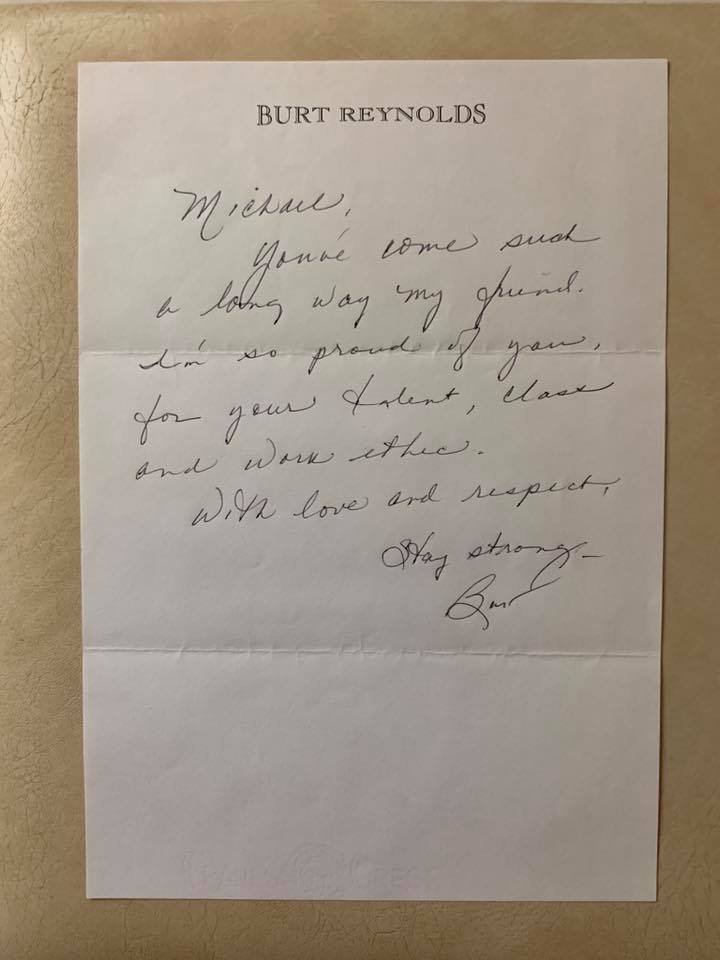 BURT REYNOLDS
Michael,
You've come such
a long way my friend.
I'm so proud of you,
for your talent, class
and work ethic.
With love and respect,
Stay strong –
Burt